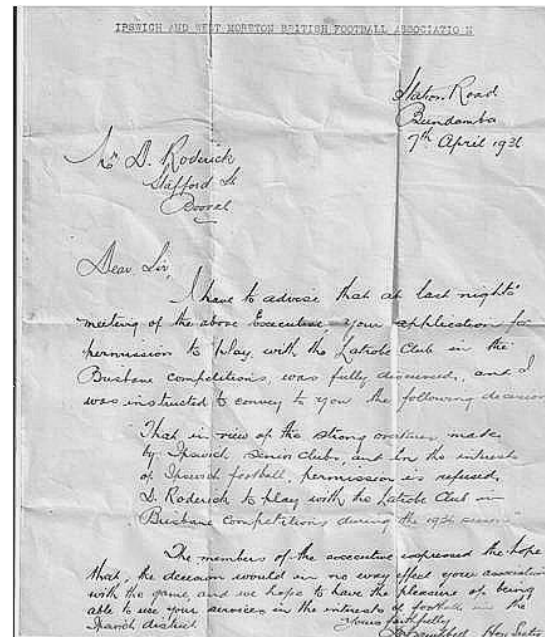 IPSWICH AND WEST MORETON BRITISH FOOTBALL ASSOCIATION
Station Road
Bundamba
7th April 1936
Mr D. Roderick
Stafford St
Booval
Dear Sir,
I have to advise that at last nights
meeting of the above Executive, your application for
permission to play with the Latrobe Club in the
Brisbane competitions, was fully discussed, and I
was instructed to convey to you the following decision
"That in view of the strong overtures made
by Ipswich senior clubs, and in the interests
of Ipswich football, permission is refused,
D. Roderick to play with the Latrobe Club in
Brisbane competitions during the 1936 season"
The members of the executive expressed the hope
that, the decision would in no way effect your association
with the game, and we hope to have the pleasure of being
able to use your services in the interests of football in the
Ipswich district.
Yours faithfully
Hon Secty